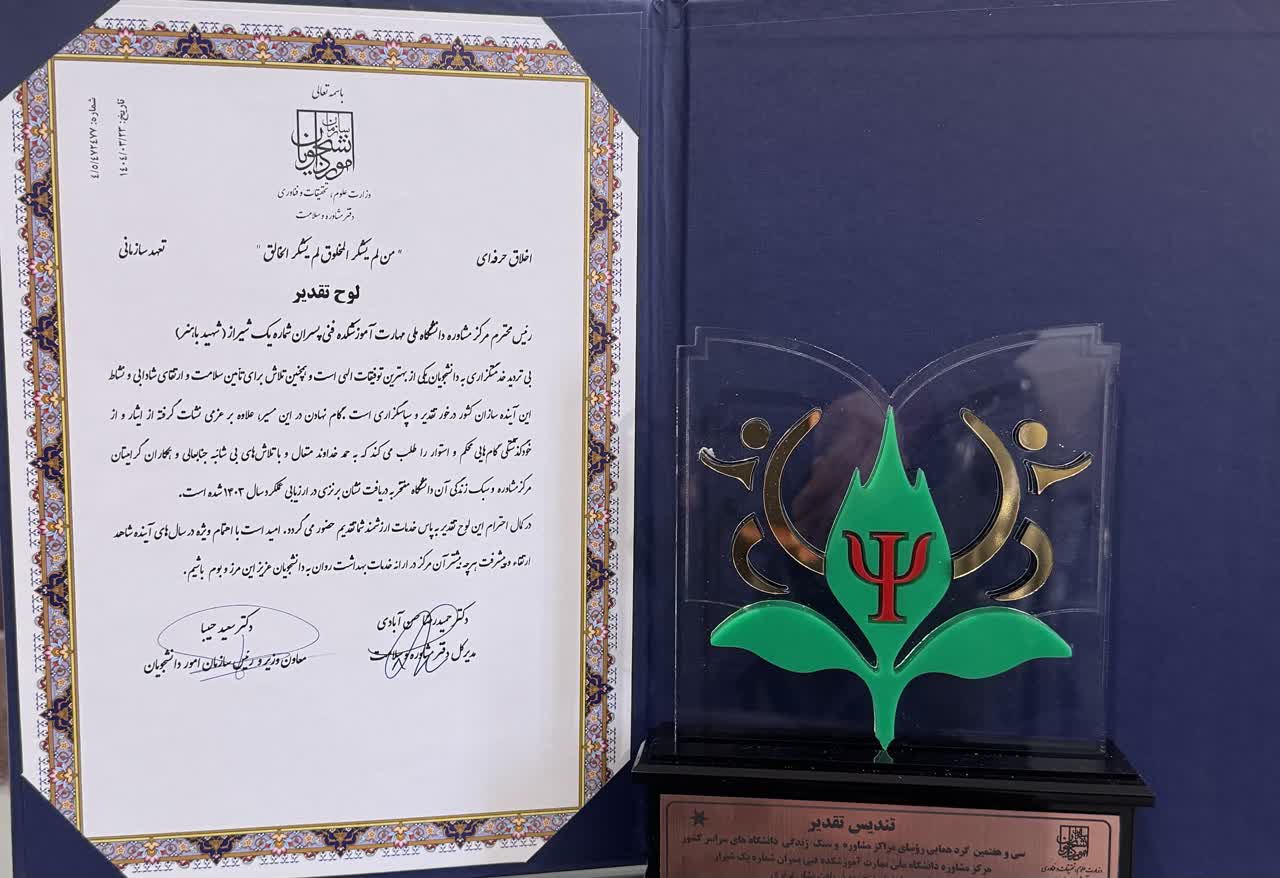 باسمه تعالی
شماره: ۴/۵/۴۷۲۴۷۷
تاریخ: ۱۴۰۴/۰۳/۲۳
سازمان امور دانشجویان
وزارت علوم، تحقیقات و فناوری
دفتر مشاوره و سلامت
اخلاق حرفه‌ای " من لم یشکر المخلوق لم یشکر الخالق " تعهد سازمانی
لوح تقدیر
رئیس محترم مرکز مشاوره دانشگاه ملی مهارت آموزشکده فنی پسران شماره یک شیراز (شهید باهنر)
بی تردید خدمتگزاری به دانشجویان یکی از بهترین توفیقات الهی است و همچنین تلاش برای تامین سلامت و ارتقای شادابی و نشاط
این آینده سازان کشور درخور تقدیر و سپاسگزاری است .گام نهادن در این مسیر، علاوه بر عزمی نشات گرفته از ایثار و از
خودگذشتگی گام‌هایی محکم و استوار را طلب می کند که به حمد خداوند متعال و با تلاش‌های بی شائبه جنابعالی و همکاران گرامیتان
مرکز مشاوره و سبک زندگی آن دانشگاه مفتخر به دریافت نشان برنزی در ارزیابی عملکرد سال ۱۴۰۳ شده است.
در کمال احترام این لوح تقدیر به پاس خدمات ارزشمند شما تقدیم حضور می گردد. امید است با اهتمام ویژه در سال‌های آینده شاهد
ارتقاء و پیشرفت هر چه بیشتر آن مرکز در ارائه خدمات بهداشت روان به دانشجویان عزیز این مرز و بوم باشیم.
دکتر حمیدرضا حسن آبادی
مدیرکل دفتر مشاوره و سلامت
دکتر سعید حبیبا
معاون وزیر و رئیس سازمان امور دانشجویان
Ψ
تندیس تقدیر
سی و هفتمین گردهمایی رؤسای مراکز مشاوره و سبک زندگی دانشگاه های سراسر کشور
مرکز مشاوره دانشگاه ملی مهارت آموزشکده فنی پسران شماره یک شیراز
سازمان امور دانشجویان
وزارت علوم، تحقیقات و فناوری